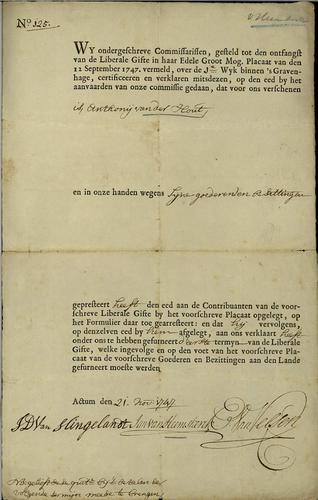 No. 125.
WY ondergeschreve Commissarissen, gesteld tot den ontfangst
van de Liberale Gifte in haar Edele Groot Mog. Placaat van den
12 September 1747. vermeld, over de Wyk binnen 's Graven-
hage, certificeren en verklaren mitsdezen, op den eed by het
aanvaarden van onze commissie gedaan, dat voor ons verschenen
is Anthonij van der Hout,
en in onze handen wegens Syne goederen en Besittingen
gepresteert heeft den eed aan de Contribuanten van de voor-
schreve Liberale Gifte by het voorschreve Placaat opgelegt, op
het Formulier daar toe gearresteert: en dat hij vervolgens,
op denzelven eed by hem afgelegt, aan ons verklaart heeft
onder ons te hebben gefurneert d'eerste termyn van de Liberale
Gifte, welke ingevolge en op den voet van het voorschreve Pla-
caat van de voorschreve Goederen en Bezittingen aan den Lande
gefurneert moeste werden.
Actum den 21. Nov. 1747
J D Van Slingelandt
NB
volgende termijn mede te brengen